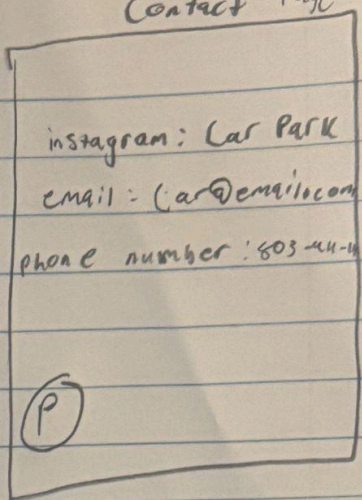 Contact Page
instagram: Car Park
email: Car@email.com
phone number: 803-
P